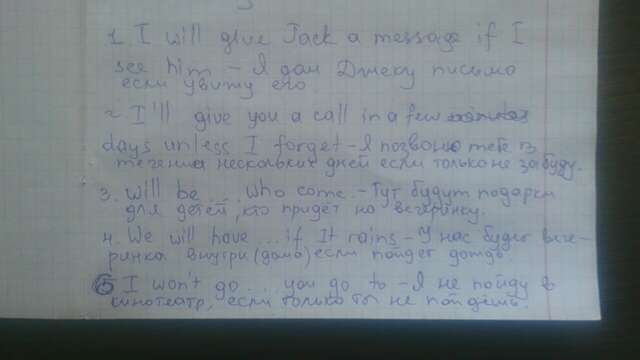 1. I will give Jack a message if I
see him - Я дам Джеку письмо
если увижу его.
2. I'll give you a call in a few
days unless I forget - Я позвоню тебе в
течении нескольких дней если только не забуду.
3. Will be ... who come. - Тут будут подарки
для детей, кто придёт на вечеринку.
4. We will have ... if It rains - У нас будет вече-
ринка внутри (дома) если пойдет дождь
5 I won't go .... you go to - Я не пойду в
кинотеатр, если только ты не пойдёшь.